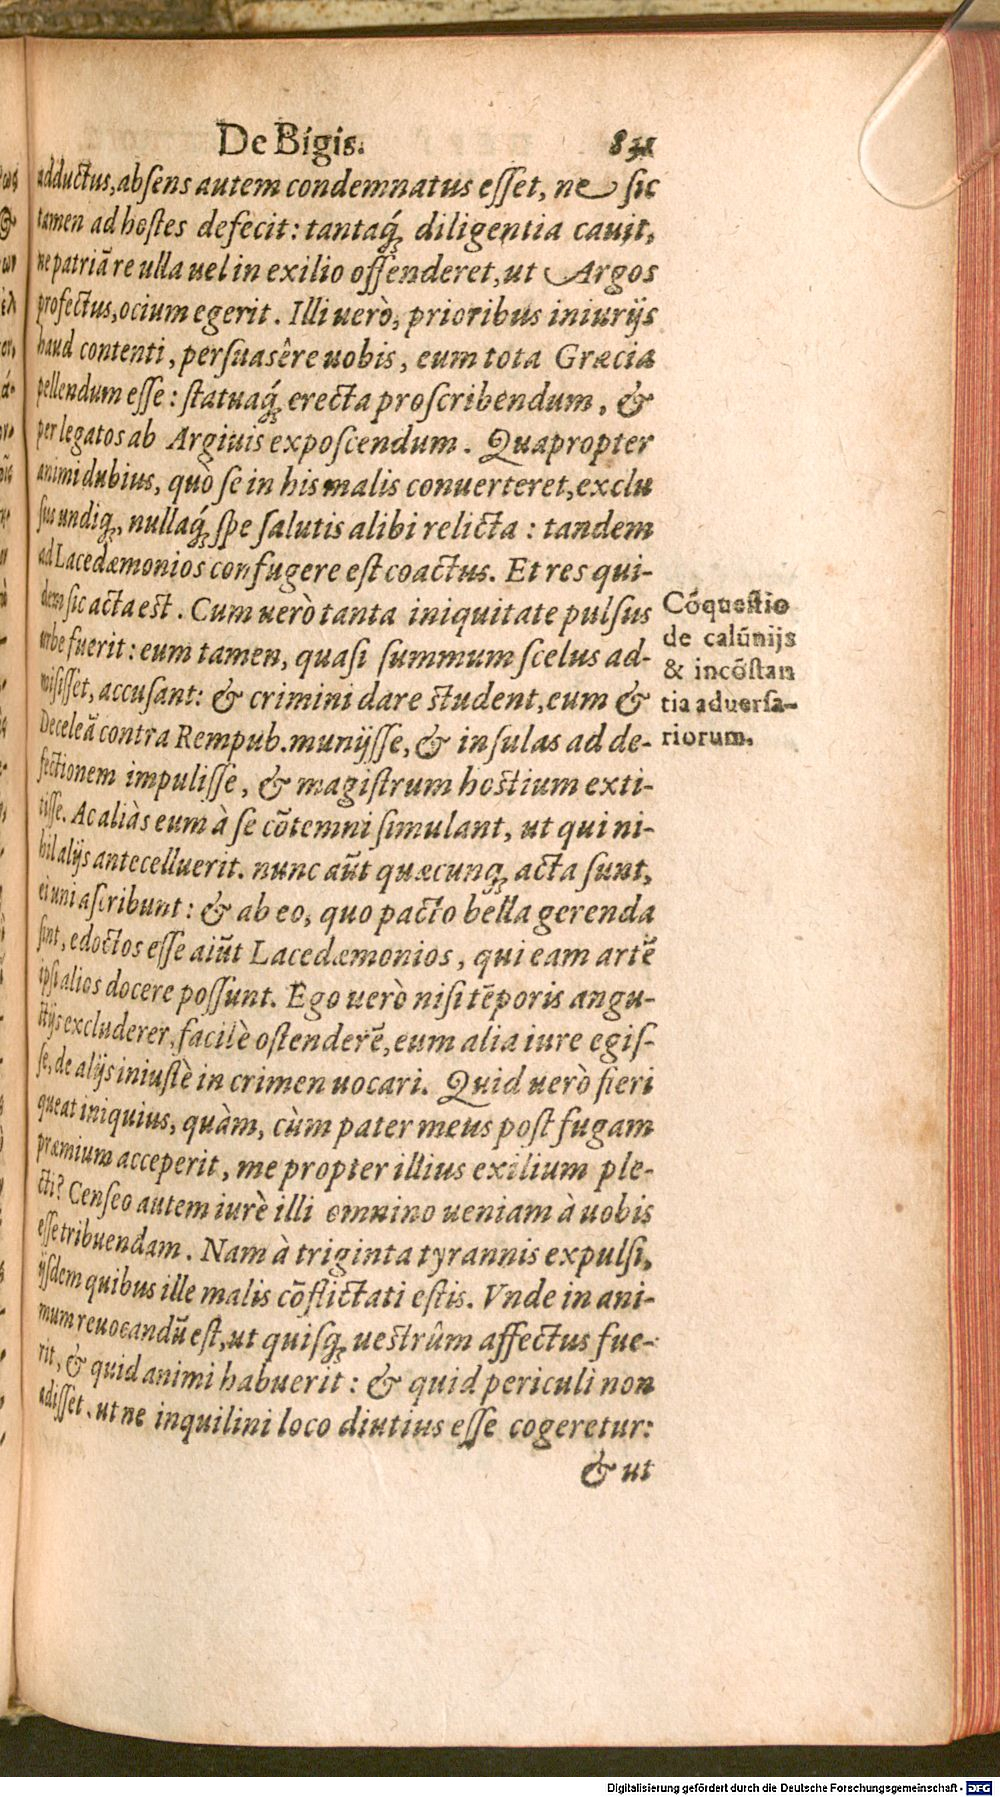 De Bigis. 831
adductus, absens autem condemnatus esset, ne sic
tamen ad hostes defecit: tantaq́; diligentia cauit,
ne patriã re ulla uel in exilio offenderet, ut Argos
profectus, ocium egerit. Illi uerò, prioribus iniurijs
haud contenti, persuasêre uobis, eum tota Græcia
pellendum esse: statuaq́; erecta proscribendum, &
per legatos ab Argiuis exposcendum. Quapropter
animi dubius, quò se in his malis conuerteret, exclu
sus undiq;, nullaq́; spe salutis alibi relicta: tandem
ad Lacedæmonios confugere est coactus. Et res qui-
dem sic acta est. Cum uerò tanta iniquitate pulsus
urbe fuerit: eum tamen, quasi summum scelus ad-
misisset, accusant: & crimini dare student, eum &
Deceleã contra Rempub. munijsse, & insulas ad de-
fectionem impulisse, & magistrum hostium exti-
tisse. Ac aliàs eum à se cõtemni simulant, ut qui ni-
hil alijs antecelluerit. nunc aũt quæcunq; acta sunt,
ei uni ascribunt: & ab eo, quo pacto bella gerenda
sint, edoctos esse aiũt Lacedæmonios, qui eam artẽ
ipsi alios docere possunt. Ego uerò nisi tẽporis angu-
stijs excluderer, facilè ostenderẽ, eum alia iure egis-
se, de alijs iniustè in crimen uocari. Quid uerò fieri
queat iniquius, quàm, cùm pater meus post fugam
præmium acceperit, me propter illius exilium ple-
cti? Censeo autem iurè illi omnino ueniam à uobis
esse tribuendam. Nam à triginta tyrannis expulsi,
ijsdem quibus ille malis cõflictati estis. Vnde in ani-
mum reuocandũ est, ut quisq; uestrûm affectus fue-
rit, & quid animi habuerit: & quid periculi non
adisset, ut ne inquilini loco diutius esse cogeretur:
& ut
Cõquestio
de calũnijs
& incõstan
tia aduersa-
riorum.
Digitalisierung gefördert durch die Deutsche Forschungsgemeinschaft - DFG